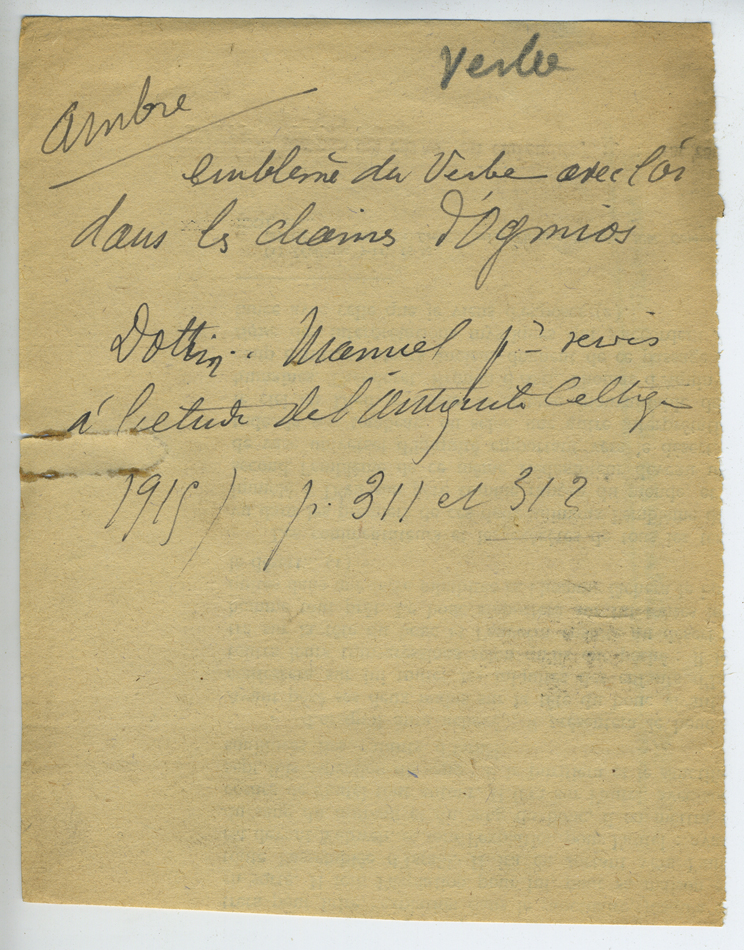 Verbe
Ambre
emblème du Verbe avec l'or
dans les chaines d'Ogmios
Dottin. Manuel pr servir
à l'etude de l'Antiquité Celtique
1915) p. 311 et 312